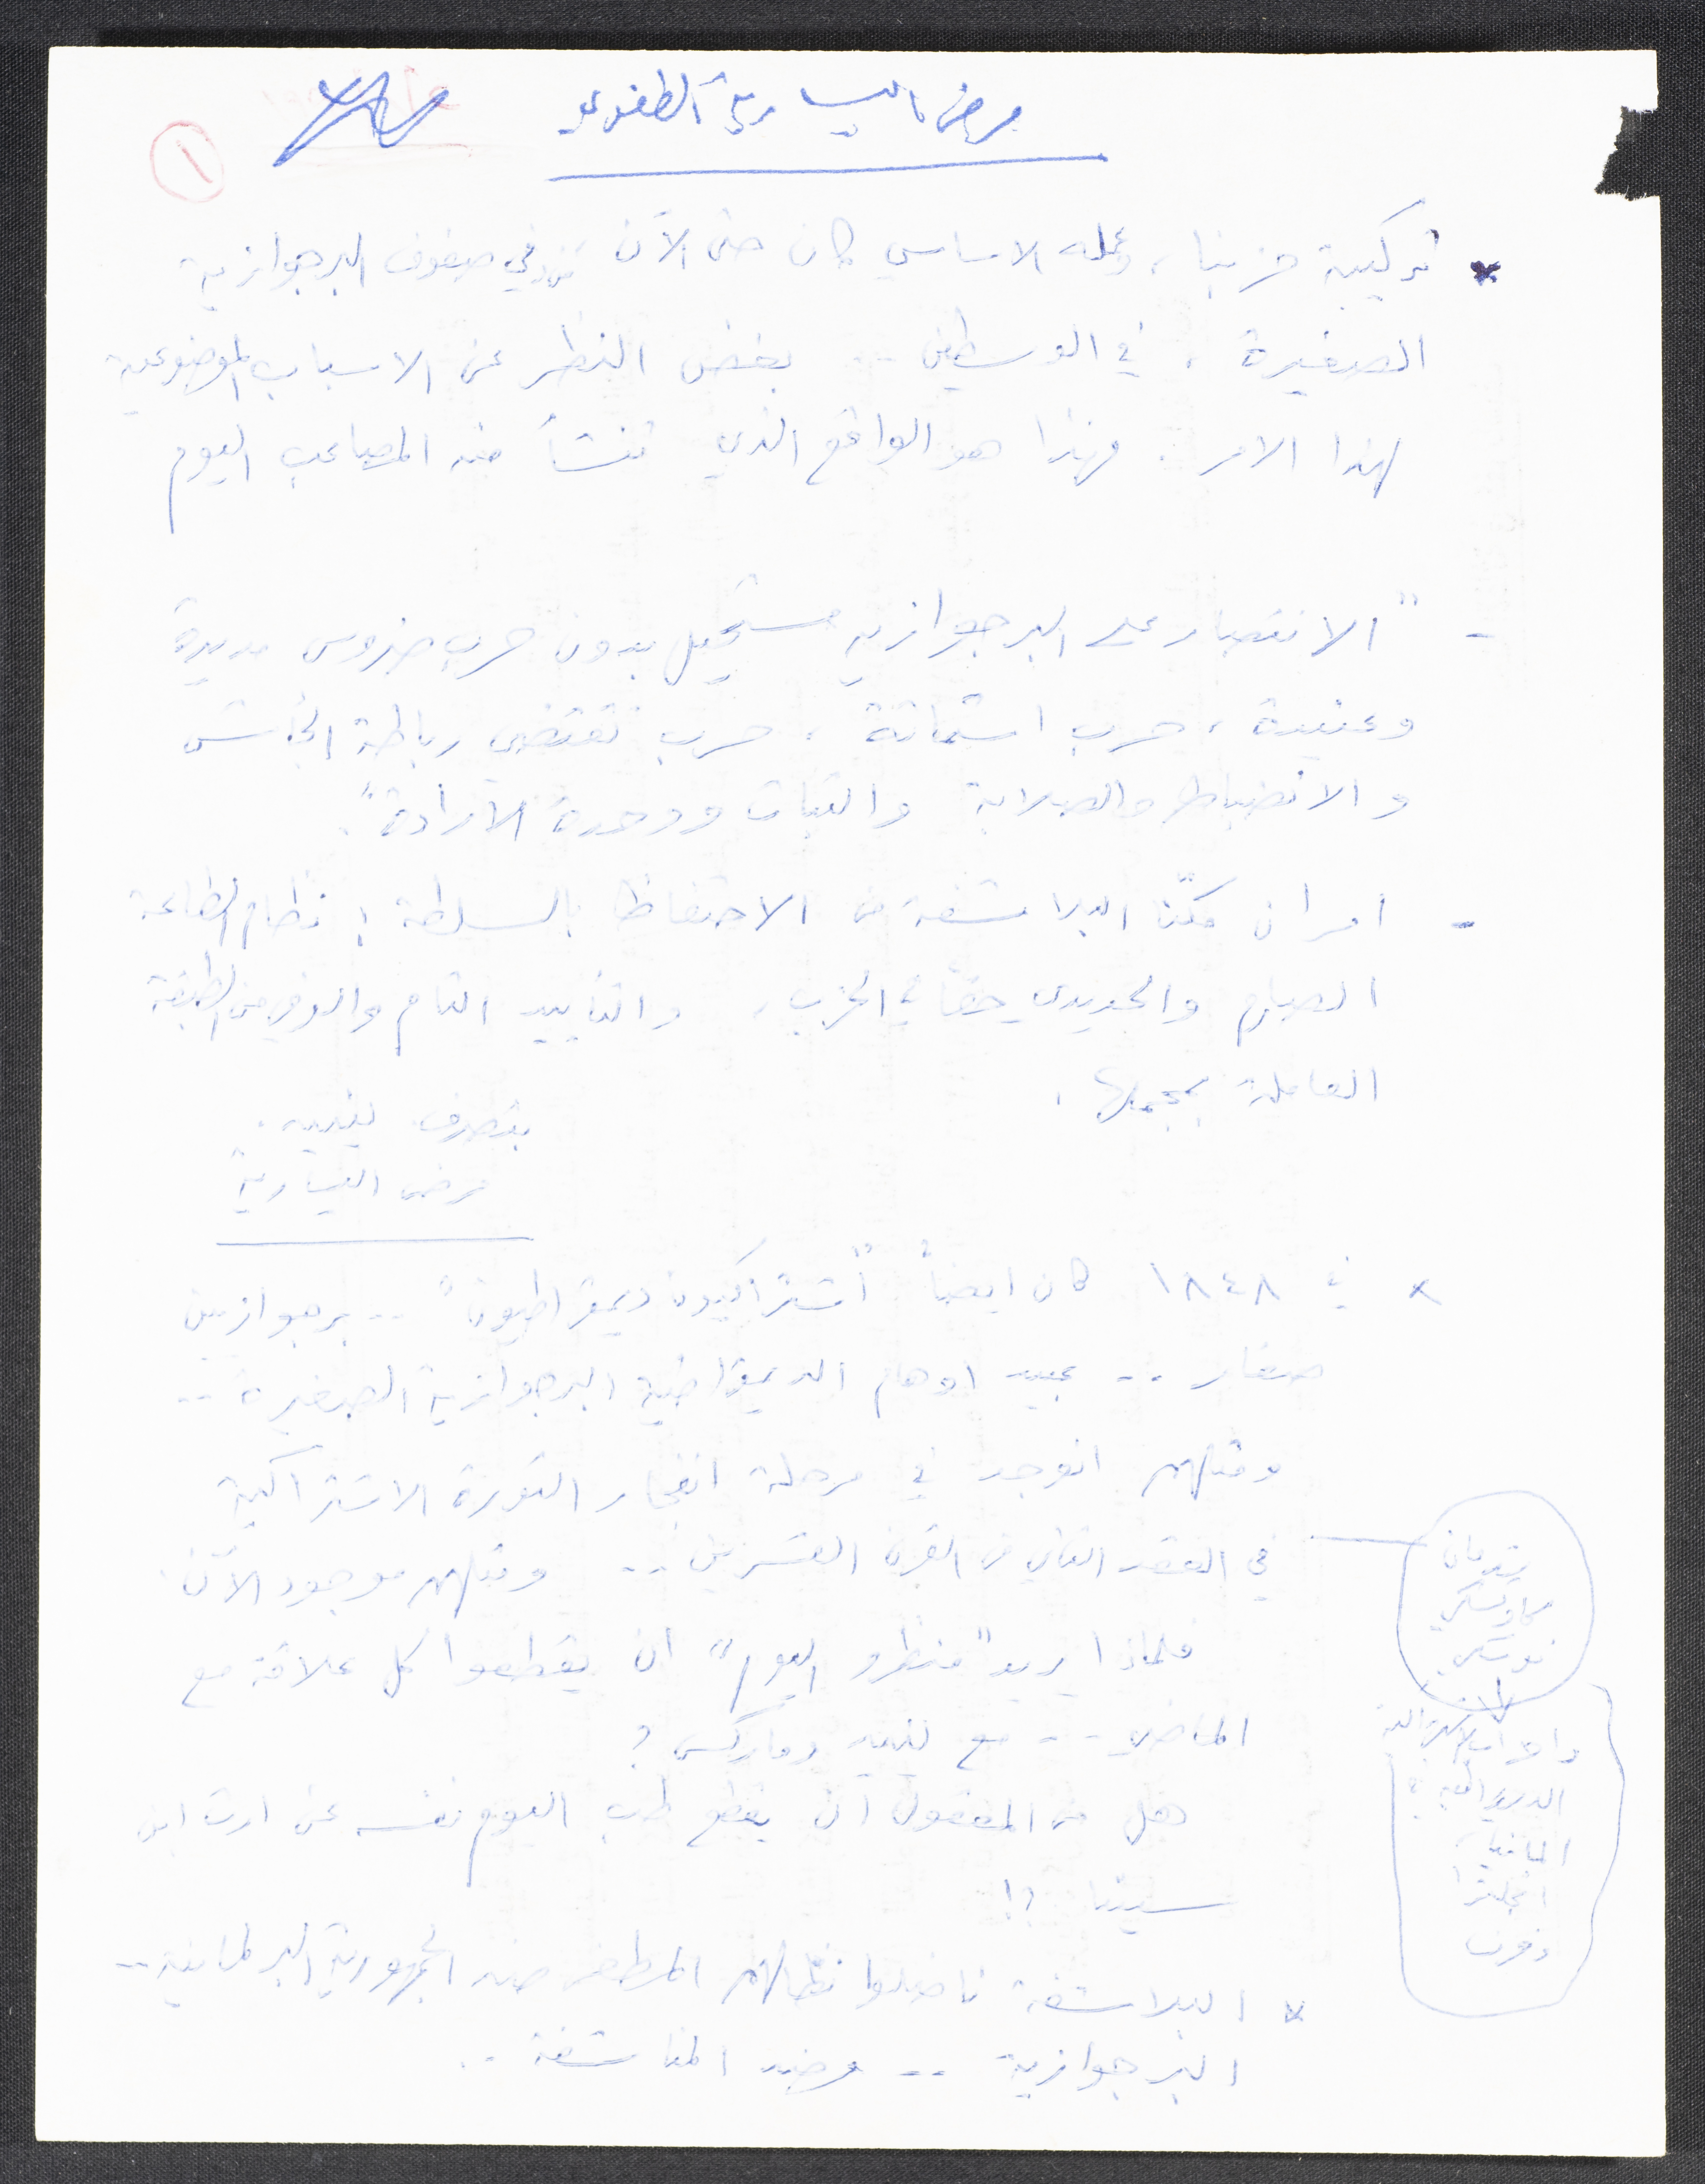 مرض اليسارية الطفولي
١
* تركيبة حزبنا، وعمله الاساسي كان حتى الآن في صفوف البرجوازية
الصغيرة، في الوسطين -- بغض النظر عن الاسباب الموضوعية
لهذا الامر. فهذا هو الواقع الذي تنشأ منه المصاعب اليوم
- "الانتصار على البرجوازية مستحيل بدون حرب ضروس مديدة
وعنيدة، حرب استماتة، حرب تقتضي رباطة الجأش
والانضباط والصلابة والثبات ووحدة الارادة".
- امران مكّنا البلاشفة من الاحتفاظ بالسلطة: نظام الطاعة
الصارم والحديدي حقاً في الحزب، والتأييد التام والوفي من الطبقة
العاملة بمجملها.
بتصرف لينين.
مرض اليسارية
x في ١٨٤٨ كان ايضاً "اشتراكيون ديمقراطيون" -- برجوازيين
صغار -- عبيد اوهام الديمقراطية البرجوازية الصغيرة --
ومثلهم انوجد في مرحلة انفجار الثورة الاشتراكية
في العقد الثاني من القرن العشرين -- ومثلهم موجود الآن.
فلماذا يريد "منظرو اليوم" ان يقطعوا كل علاقة مع
الماضي -- مع لينين وماركس؟
هل من المعقول ان يقطع طب اليوم نفسه عن ارث ابن
سينا؟!
x البلاشفة ناضلوا نضالهم المظفر ضد الجمهورية البرلمانية --
البرجوازية -- وضد المناشفة --
كاوتسكي
الاشتراكية
المانيا،
انجلترا